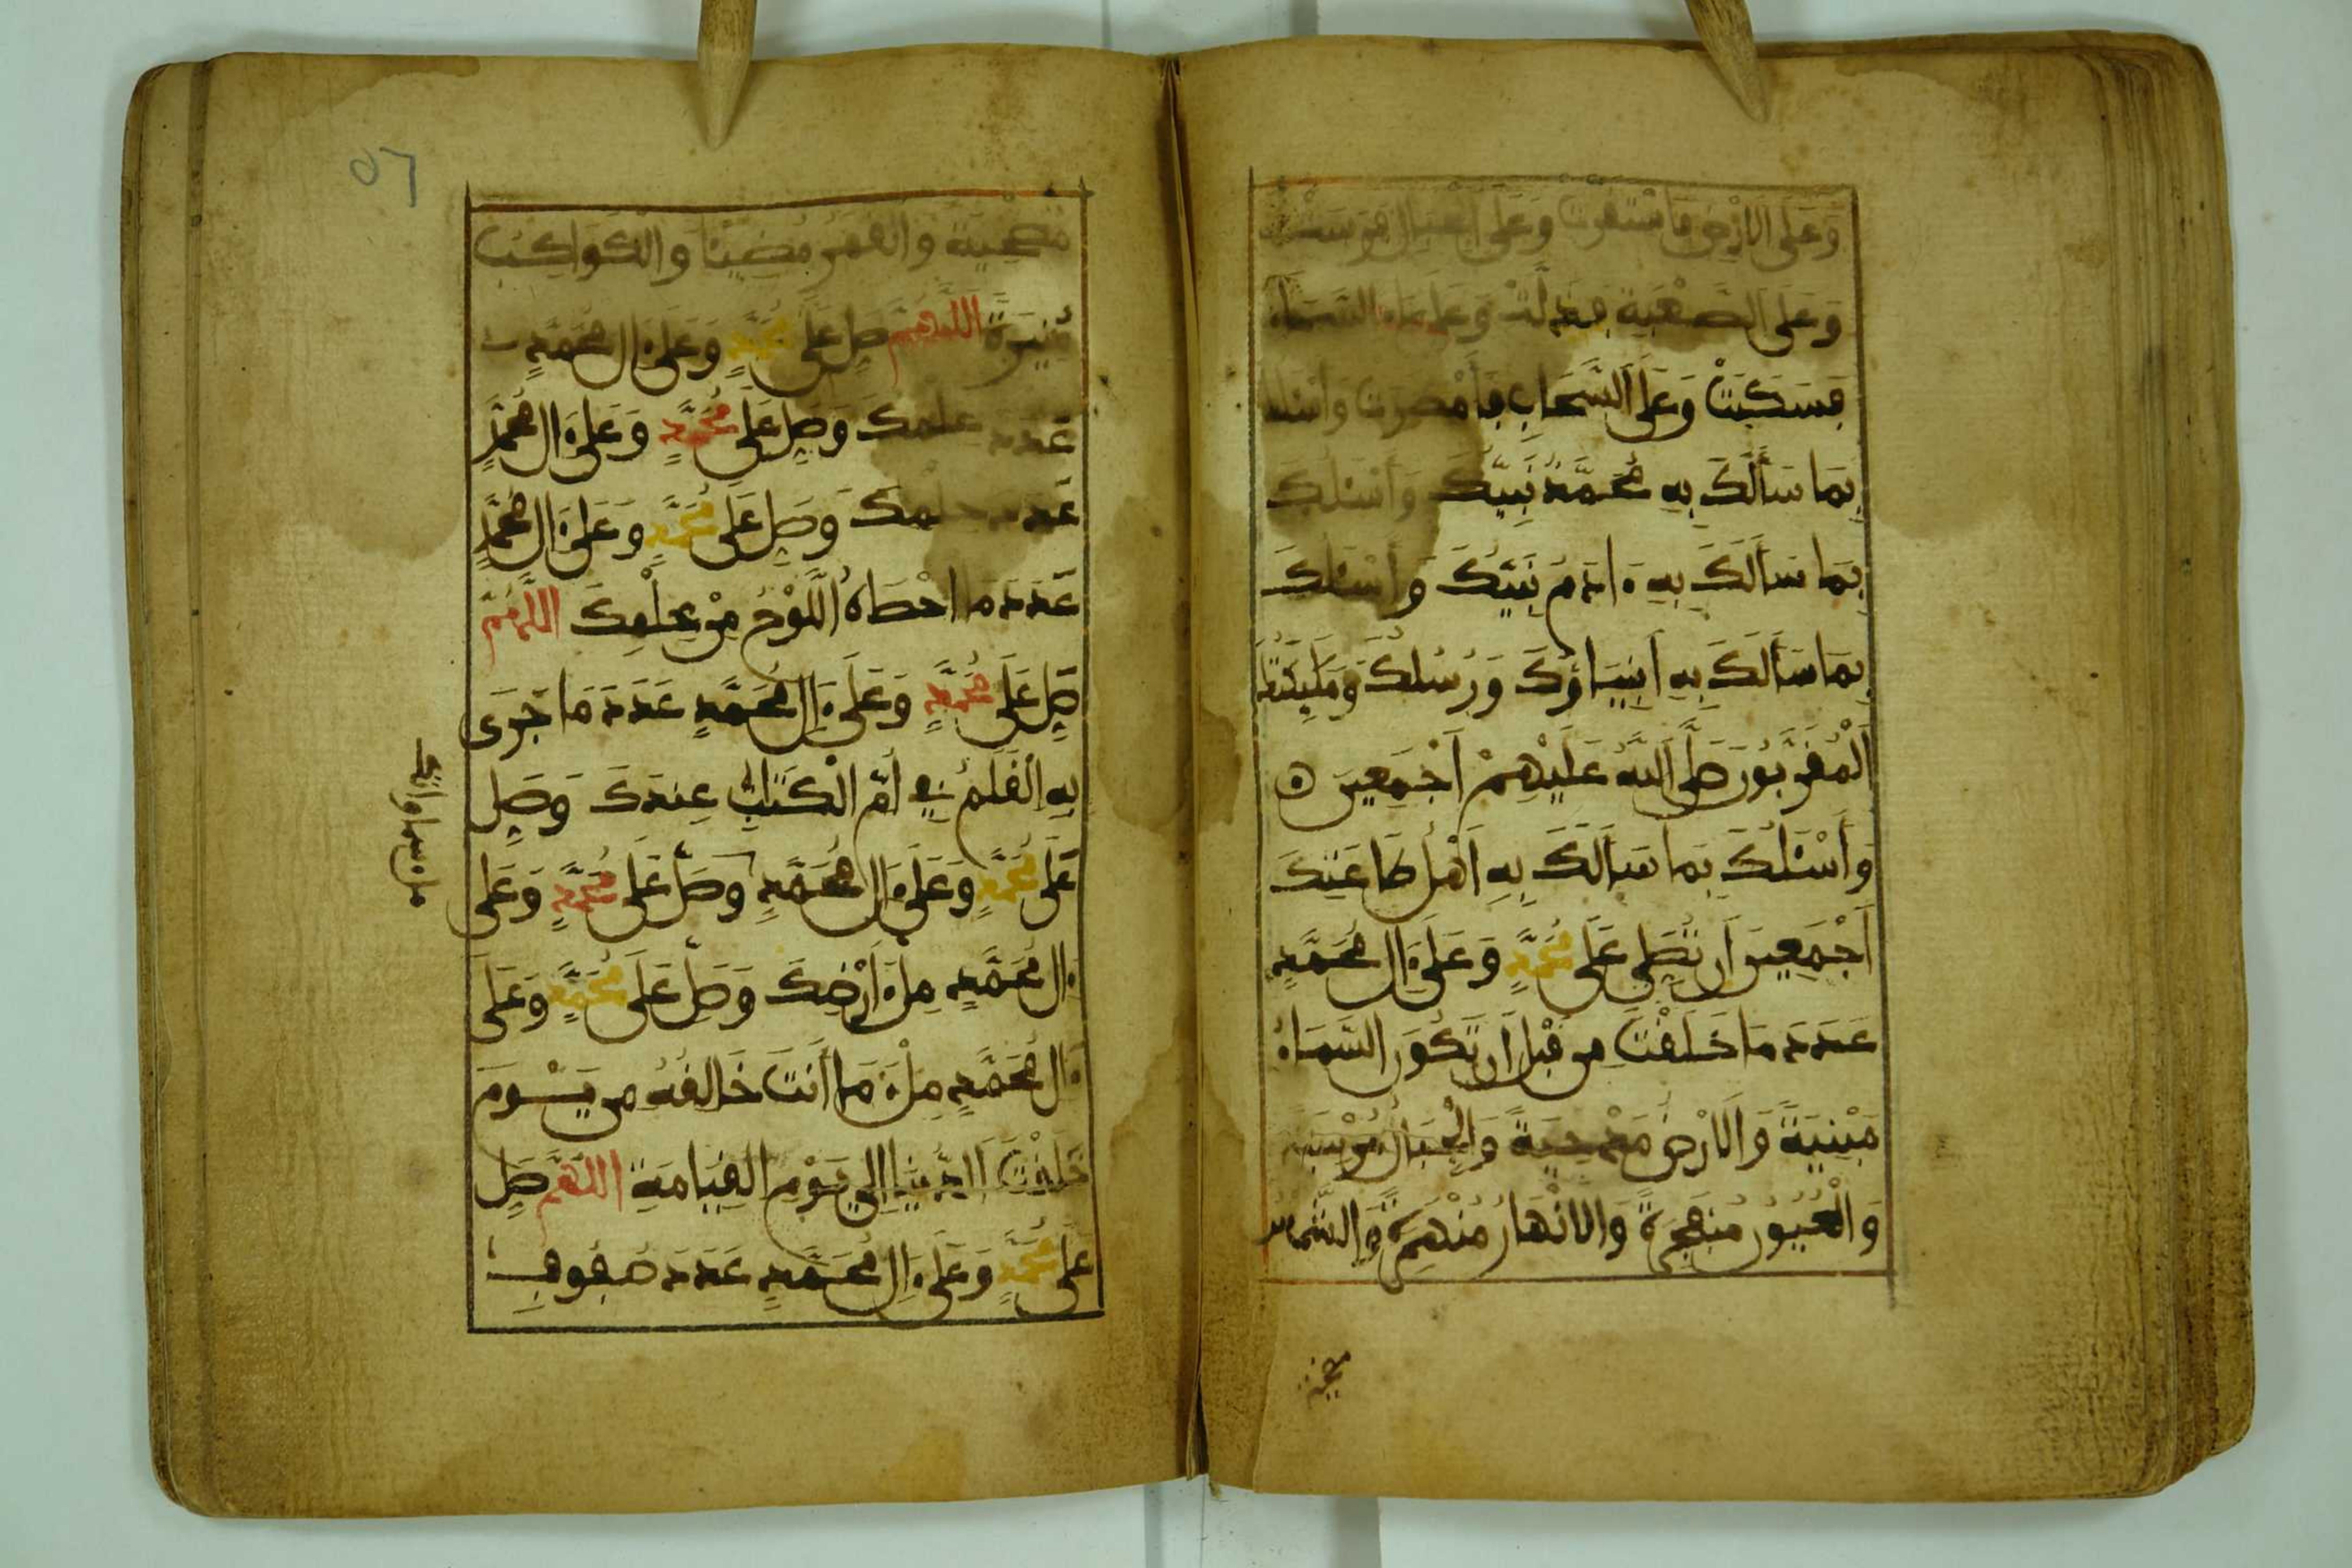 وَعَلَى الأَرْضِ فَاسْتَقَرَّتْ وَعَلَى الجِبَالِ فَرَسَتْ
وَعَلَى الصَّعْبَةِ فَذَلَّتْ وَعَلَى مَاءِ السَّمَاءِ
فَسَكَبَتْ وَعَلَى السَّحَابِ فَأَمْطَرَتْ وَأَسْئَلُكَ
بِمَا سَأَلَكَ بِهِ مُحَمَّدٌ نَبِيُّكَ وَأَسْئَلُكَ
بِمَا سَأَلَكَ بِهِ ءَادَمُ نَبِيُّكَ وَأَسْئَلُكَ
بِمَا سَأَلَكَ بِهِ أَنْبِيَاؤُكَ وَرُسُلُكَ وَمَلَئِكَتُكَ
الْمُقَرَّبُونَ صَلَّى اللَّهُ عَلَيْهِمْ أَجْمَعِينَ
وَأَسْئَلُكَ بِمَا سَأَلَكَ بِهِ أَهْلُ طَاعَتِكَ
أَجْمَعِينَ أَن تُصَلِّيَ عَلَى مُحَمَّدٍ وَعَلَى ءَالِ مُحَمَّدٍ
عَدَدَ مَا خَلَقْتَ مِن قَبْلِ أَن تَكُونَ السَّمَاءُ
مَبْنِيَّةً وَالأَرْضُ مَدْحِيَّةً وَالْجِبَالُ مُرْسِيَةً
وَالْعُيُونُ مُنْفَجِرَةً وَالأَنْهَارُ مُنْهَمِرَةً وَالشَّمْسُ
مضحية
مُضْحِيَةً وَالْقَمَرُ مُضِيئًا وَالْكَوَاكِبُ
مُنِيرَةً اللَّهُمَّ صَلِّ عَلَى مُحَمَّدٍ وَعَلَى ءَالِ مُحَمَّدٍ
عَدَدَ عِلْمِكَ وَصَلِّ عَلَى مُحَمَّدٍ وَعَلَى ءَالِ مُحَمَّدٍ
عَدَدَ حِلْمِكَ وَصَلِّ عَلَى مُحَمَّدٍ وَعَلَى ءَالِ مُحَمَّدٍ
عَدَدَ مَا أَحْصَاهُ اللَّوْحُ مِنْ عِلْمِكَ اللَّهُمَّ
صَلِّ عَلَى مُحَمَّدٍ وَعَلَى ءَالِ مُحَمَّدٍ عَدَدَ مَا جَرَى
بِهِ الْقَلَمُ فِي أُمِّ الْكِتَابِ عِندَكَ وَصَلِّ
عَلَى مُحَمَّدٍ وَعَلَى ءَالِ مُحَمَّدٍ وَصَلِّ عَلَى مُحَمَّدٍ وَعَلَى
ءَالِ مُحَمَّدٍ مِلْءَ أَرْضِكَ وَصَلِّ عَلَى مُحَمَّدٍ وَعَلَى
ءَالِ مُحَمَّدٍ مِلْءَ مَا أَنتَ خَالِقُهُ مِن يَوْمِ
خَلَقْتَ الدُّنْيَا إِلَى يَوْمِ الْقِيَامَةِ اللَّهُمَّ صَلِّ
عَلَى مُحَمَّدٍ وَعَلَى ءَالِ مُحَمَّدٍ عَدَدَ صُفُوفِ
ملء سماواتك
٥٦